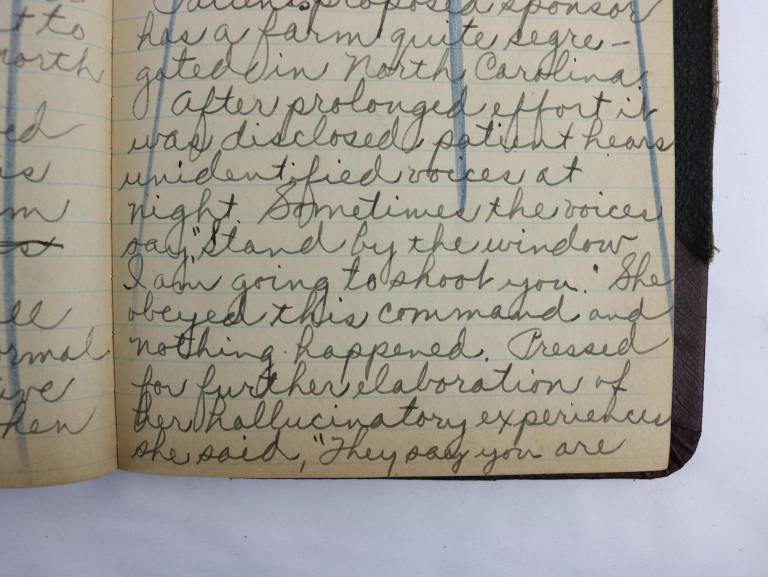 t to
north
ed
is
m
ee
ormal
ive
hen
Patient's proposed sponsor
has a farm quite segre-
gated in North Carolina
After prolonged effort it
was disclosed patient hears
unidentified voices at
night. Sometimes the voices
say, "Stand by the window
I am going to shoot you." She
obeyed this command and
nothing happened. Pressed
for further elaboration of
her hallucinatory experiences
she said, "They say you are